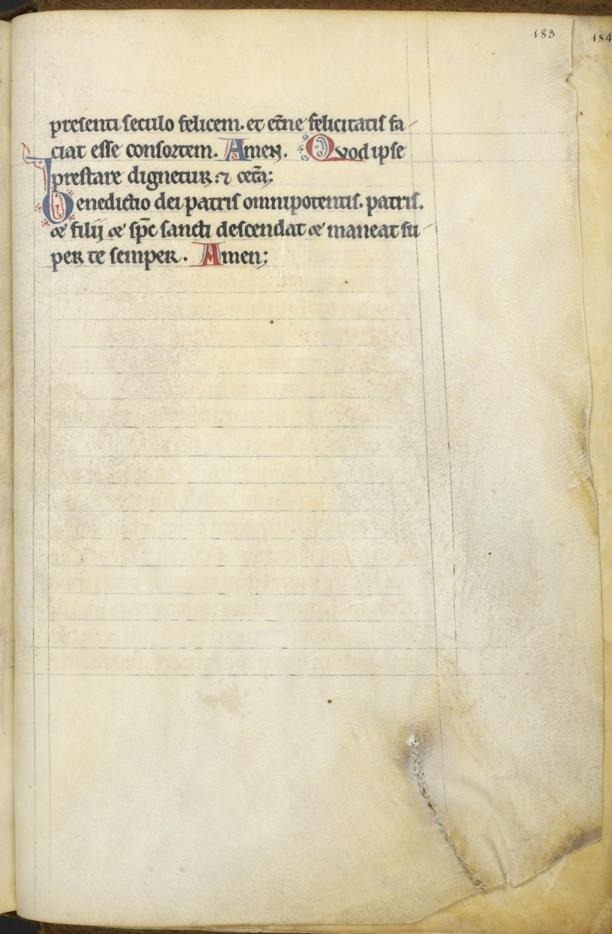 183
184
presenti seculo felicem. et et̅ne felicitatis fa
ciat esse consortem. Amen. Quod ipse
prestare dignetur ⁊ cet̅a;
Benedictio dei patris omnipotentis. patris.
& filij & sp̅c sancti descendat & maneat su
per te semper. Amen;